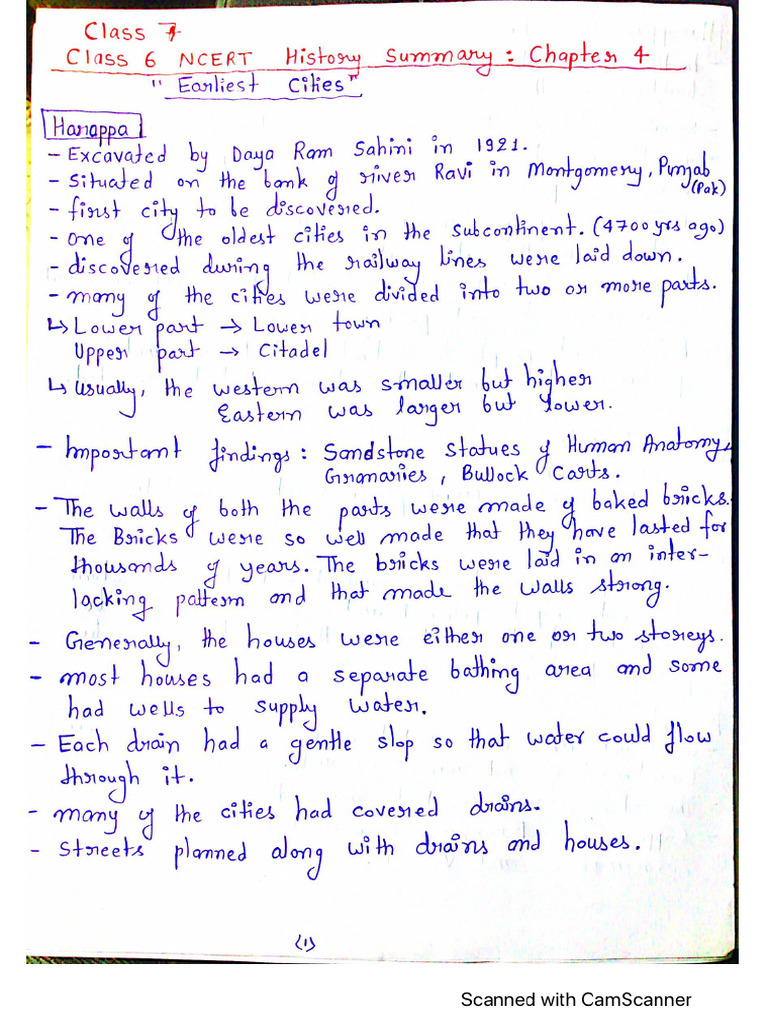 Class 7
Class 6 NCERT History Summary : Chapter 4
"Earliest Cities"
Harappa
- Excavated by Daya Ram Sahini in 1921.
- Situated on the bank of river Ravi in Montgomery, Punjab
(Pak)
- first city to be discovered.
- one of the oldest cities in the subcontinent. (4700 yrs ago)
- discovered during the railway lines were laid down.
- many of the cities were divided into two or more parts.
↳ Lower part → Lower town
Upper part → Citadel
↳ usually, the western was smaller but higher
Eastern was larger but lower.
- Important findings : Sandstone Statues of Human Anatomy,
Granaries, Bullock Carts.
- The walls of both the parts were made of baked bricks.
The Bricks were so well made that they have lasted for
thousands of years. The bricks were laid in an inter-
locking pattern and that made the walls strong.
- Generally, the houses were either one or two storeys.
- most houses had a separate bathing area and some
had wells to supply water.
- Each drain had a gentle slop so that water could flow
through it.
- many of the cities had covered drains.
- Streets planned along with drains and houses.
(1)
Scanned with CamScanner